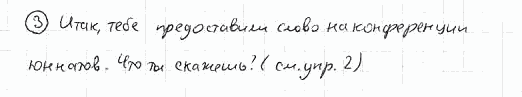 ③ Итак, тебе предоставили слово на конференции
юннатов. Что ты скажешь? (см. упр. 2)